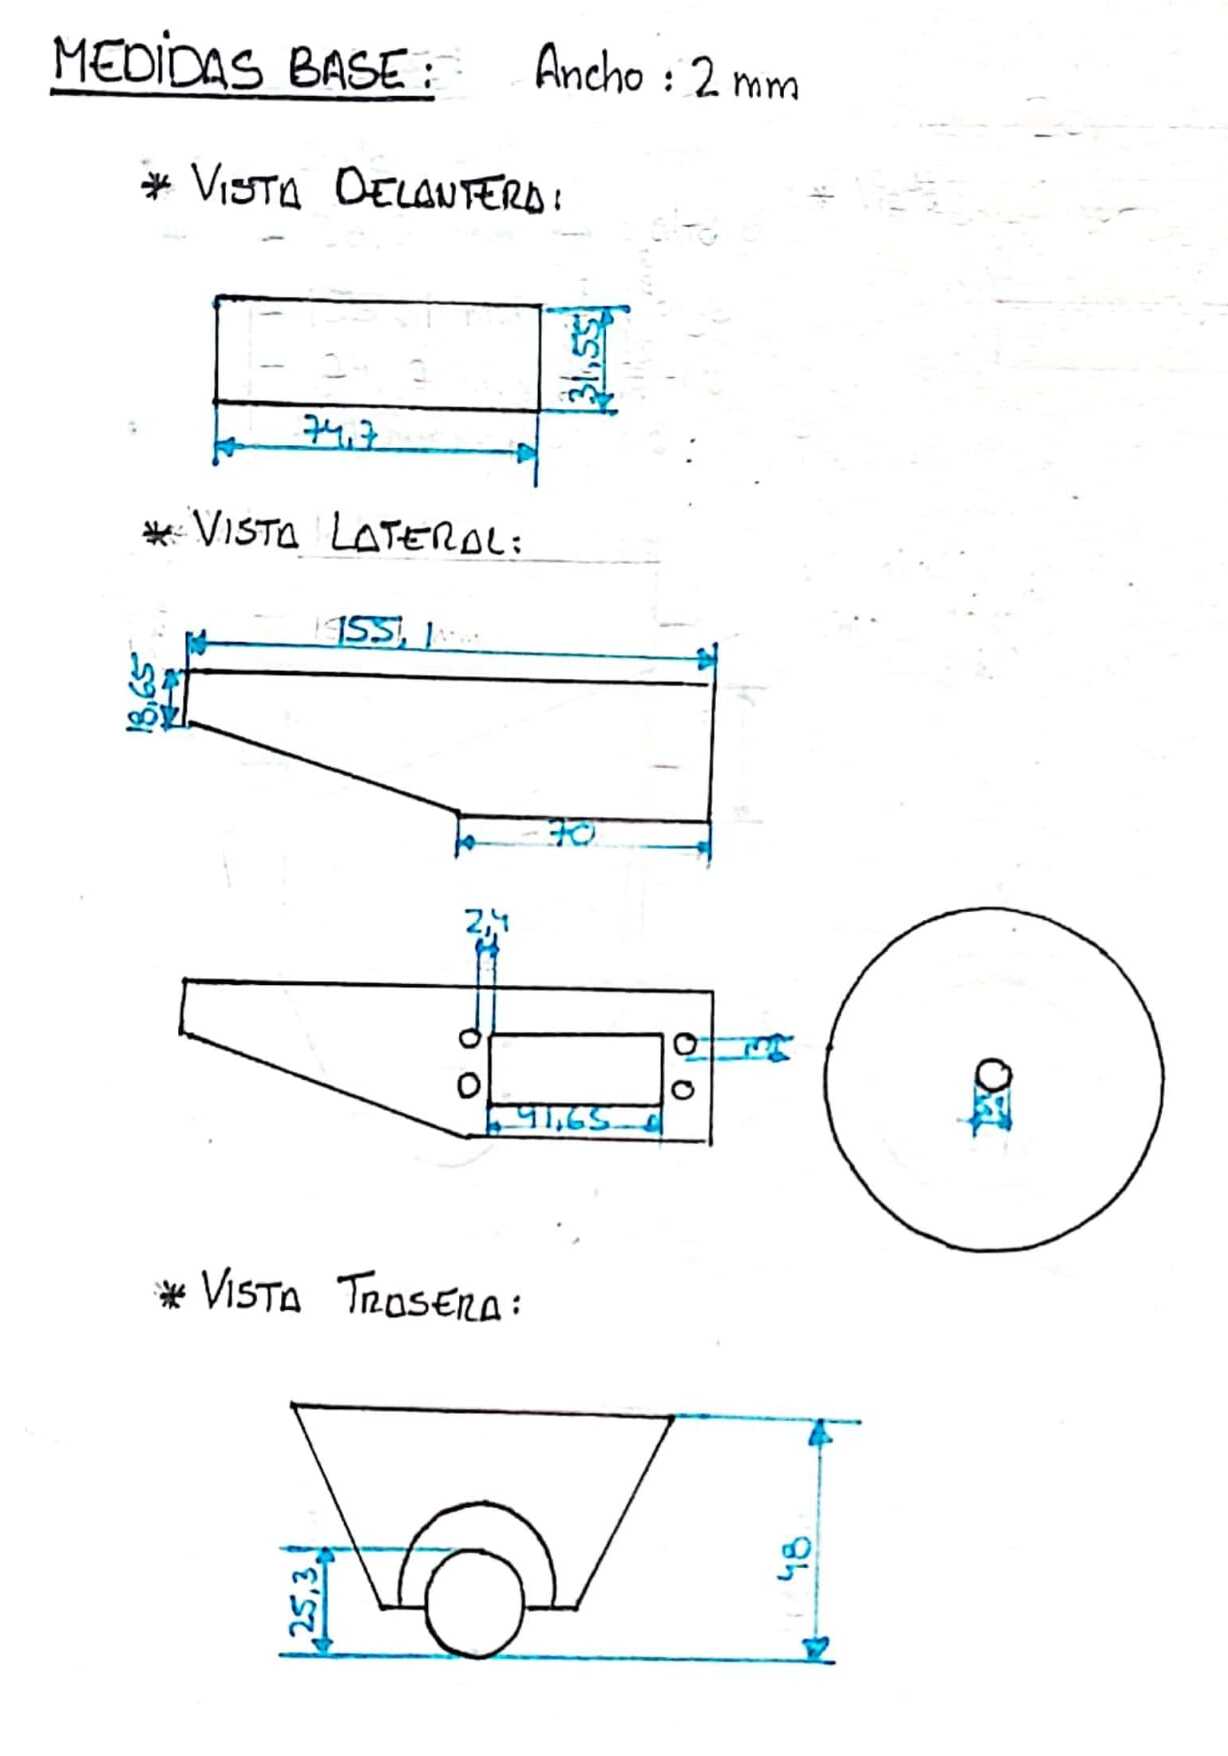 MEDIDAS BASE: Ancho: 2 mm
* VISTA DELANTERA:
31,55
74,7
* VISTA LATERAL:
155,1
18,65
70
2,4
3
41,65
* VISTA TRASERA:
48
25,3